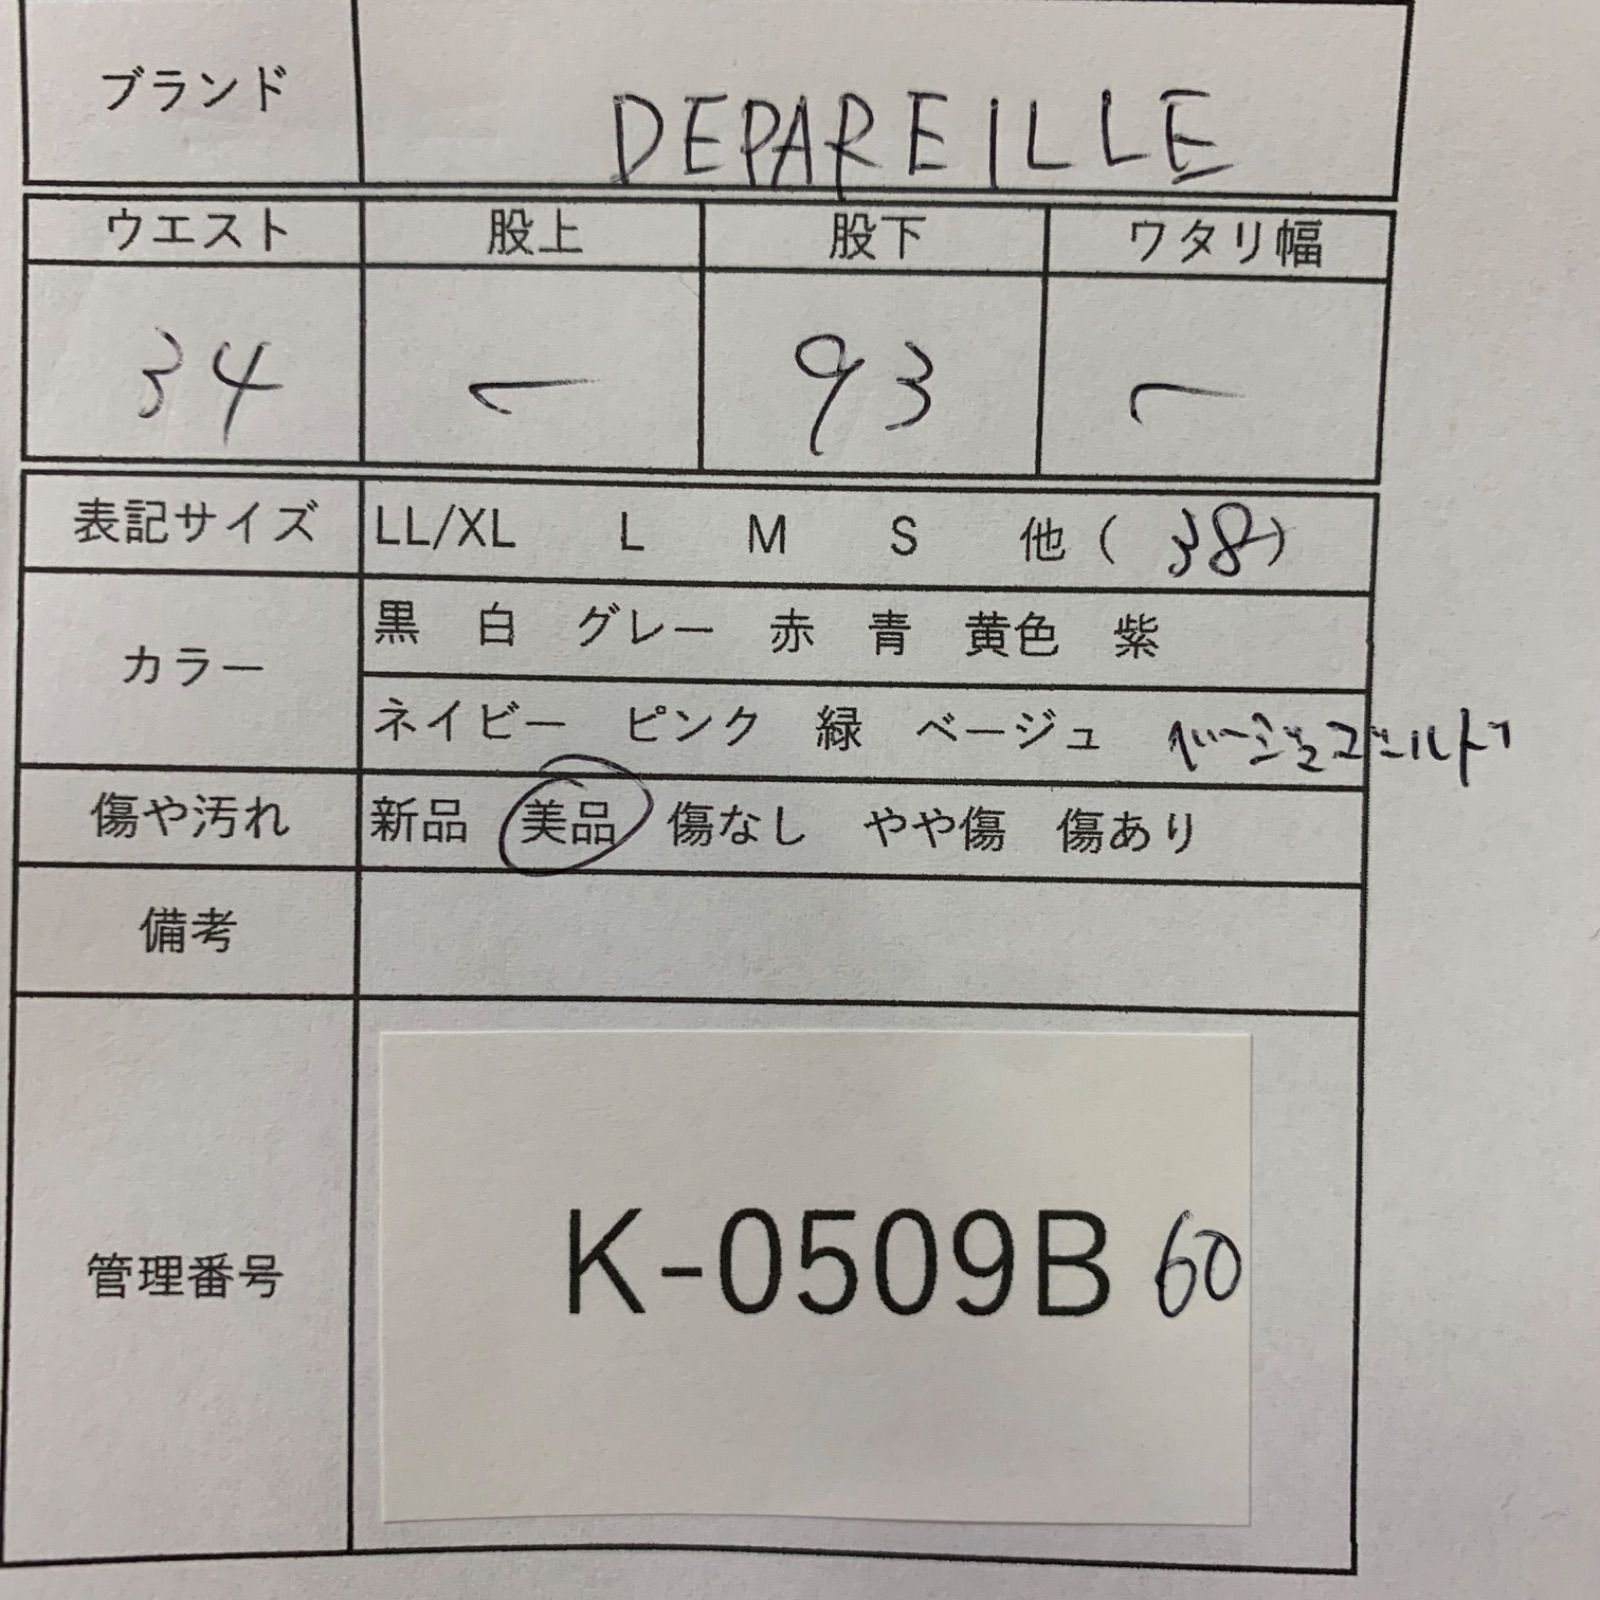 ブランド DEPAREILLE
ウエスト 股上 股下 ワタリ幅
34 ー 93 ー
表記サイズ LL/XL L M S 他 ( 38 )
カラー 黒 白 グレー 赤 青 黄色 紫
ネイビー ピンク 緑 ベージュ ベージュゴールド
傷や汚れ 新品 美品 傷なし やや傷 傷あり
備考
管理番号 K-0509B 60